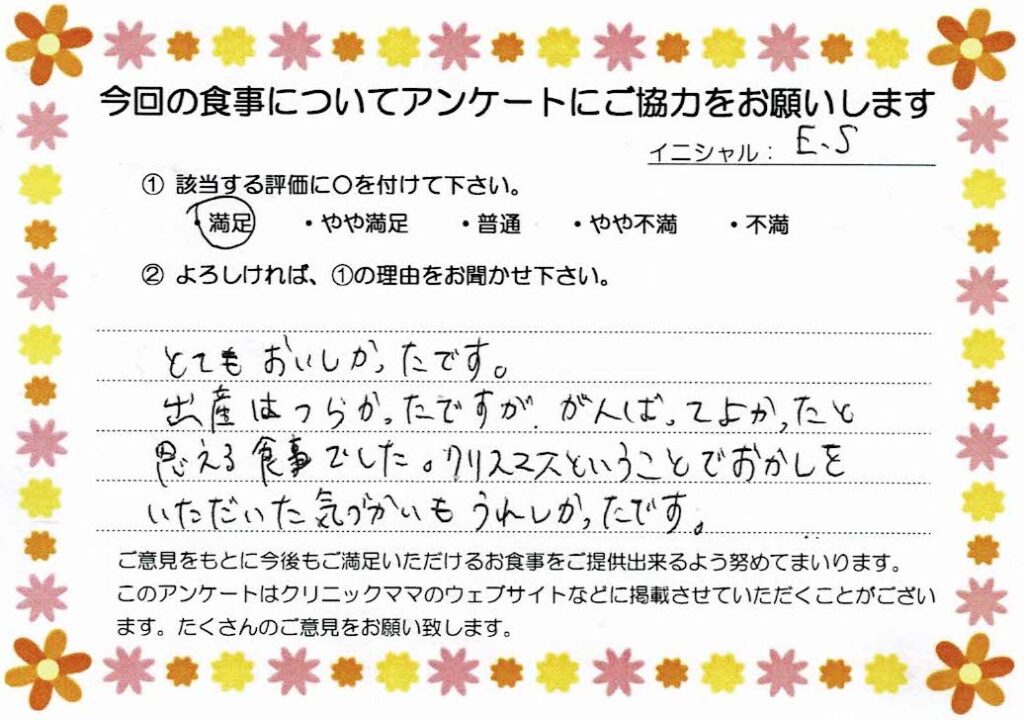 今回の食事についてアンケートにご協力をお願いします
イニシャル： E.S
① 該当する評価に○を付けて下さい。
・満足 ・やや満足 ・普通 ・やや不満 ・不満
② よろしければ、①の理由をお聞かせ下さい。
とてもおいしかったです。
出産はつらかったですが、がんばってよかったと
思える食事でした。クリスマスということでおかしを
いただいた気づかいもうれしかったです。
ご意見をもとに今後もご満足いただけるお食事をご提供出来るよう努めてまいります。
このアンケートはクリニックママのウェブサイトなどに掲載させていただくことがござい
ます。たくさんのご意見をお願い致します。